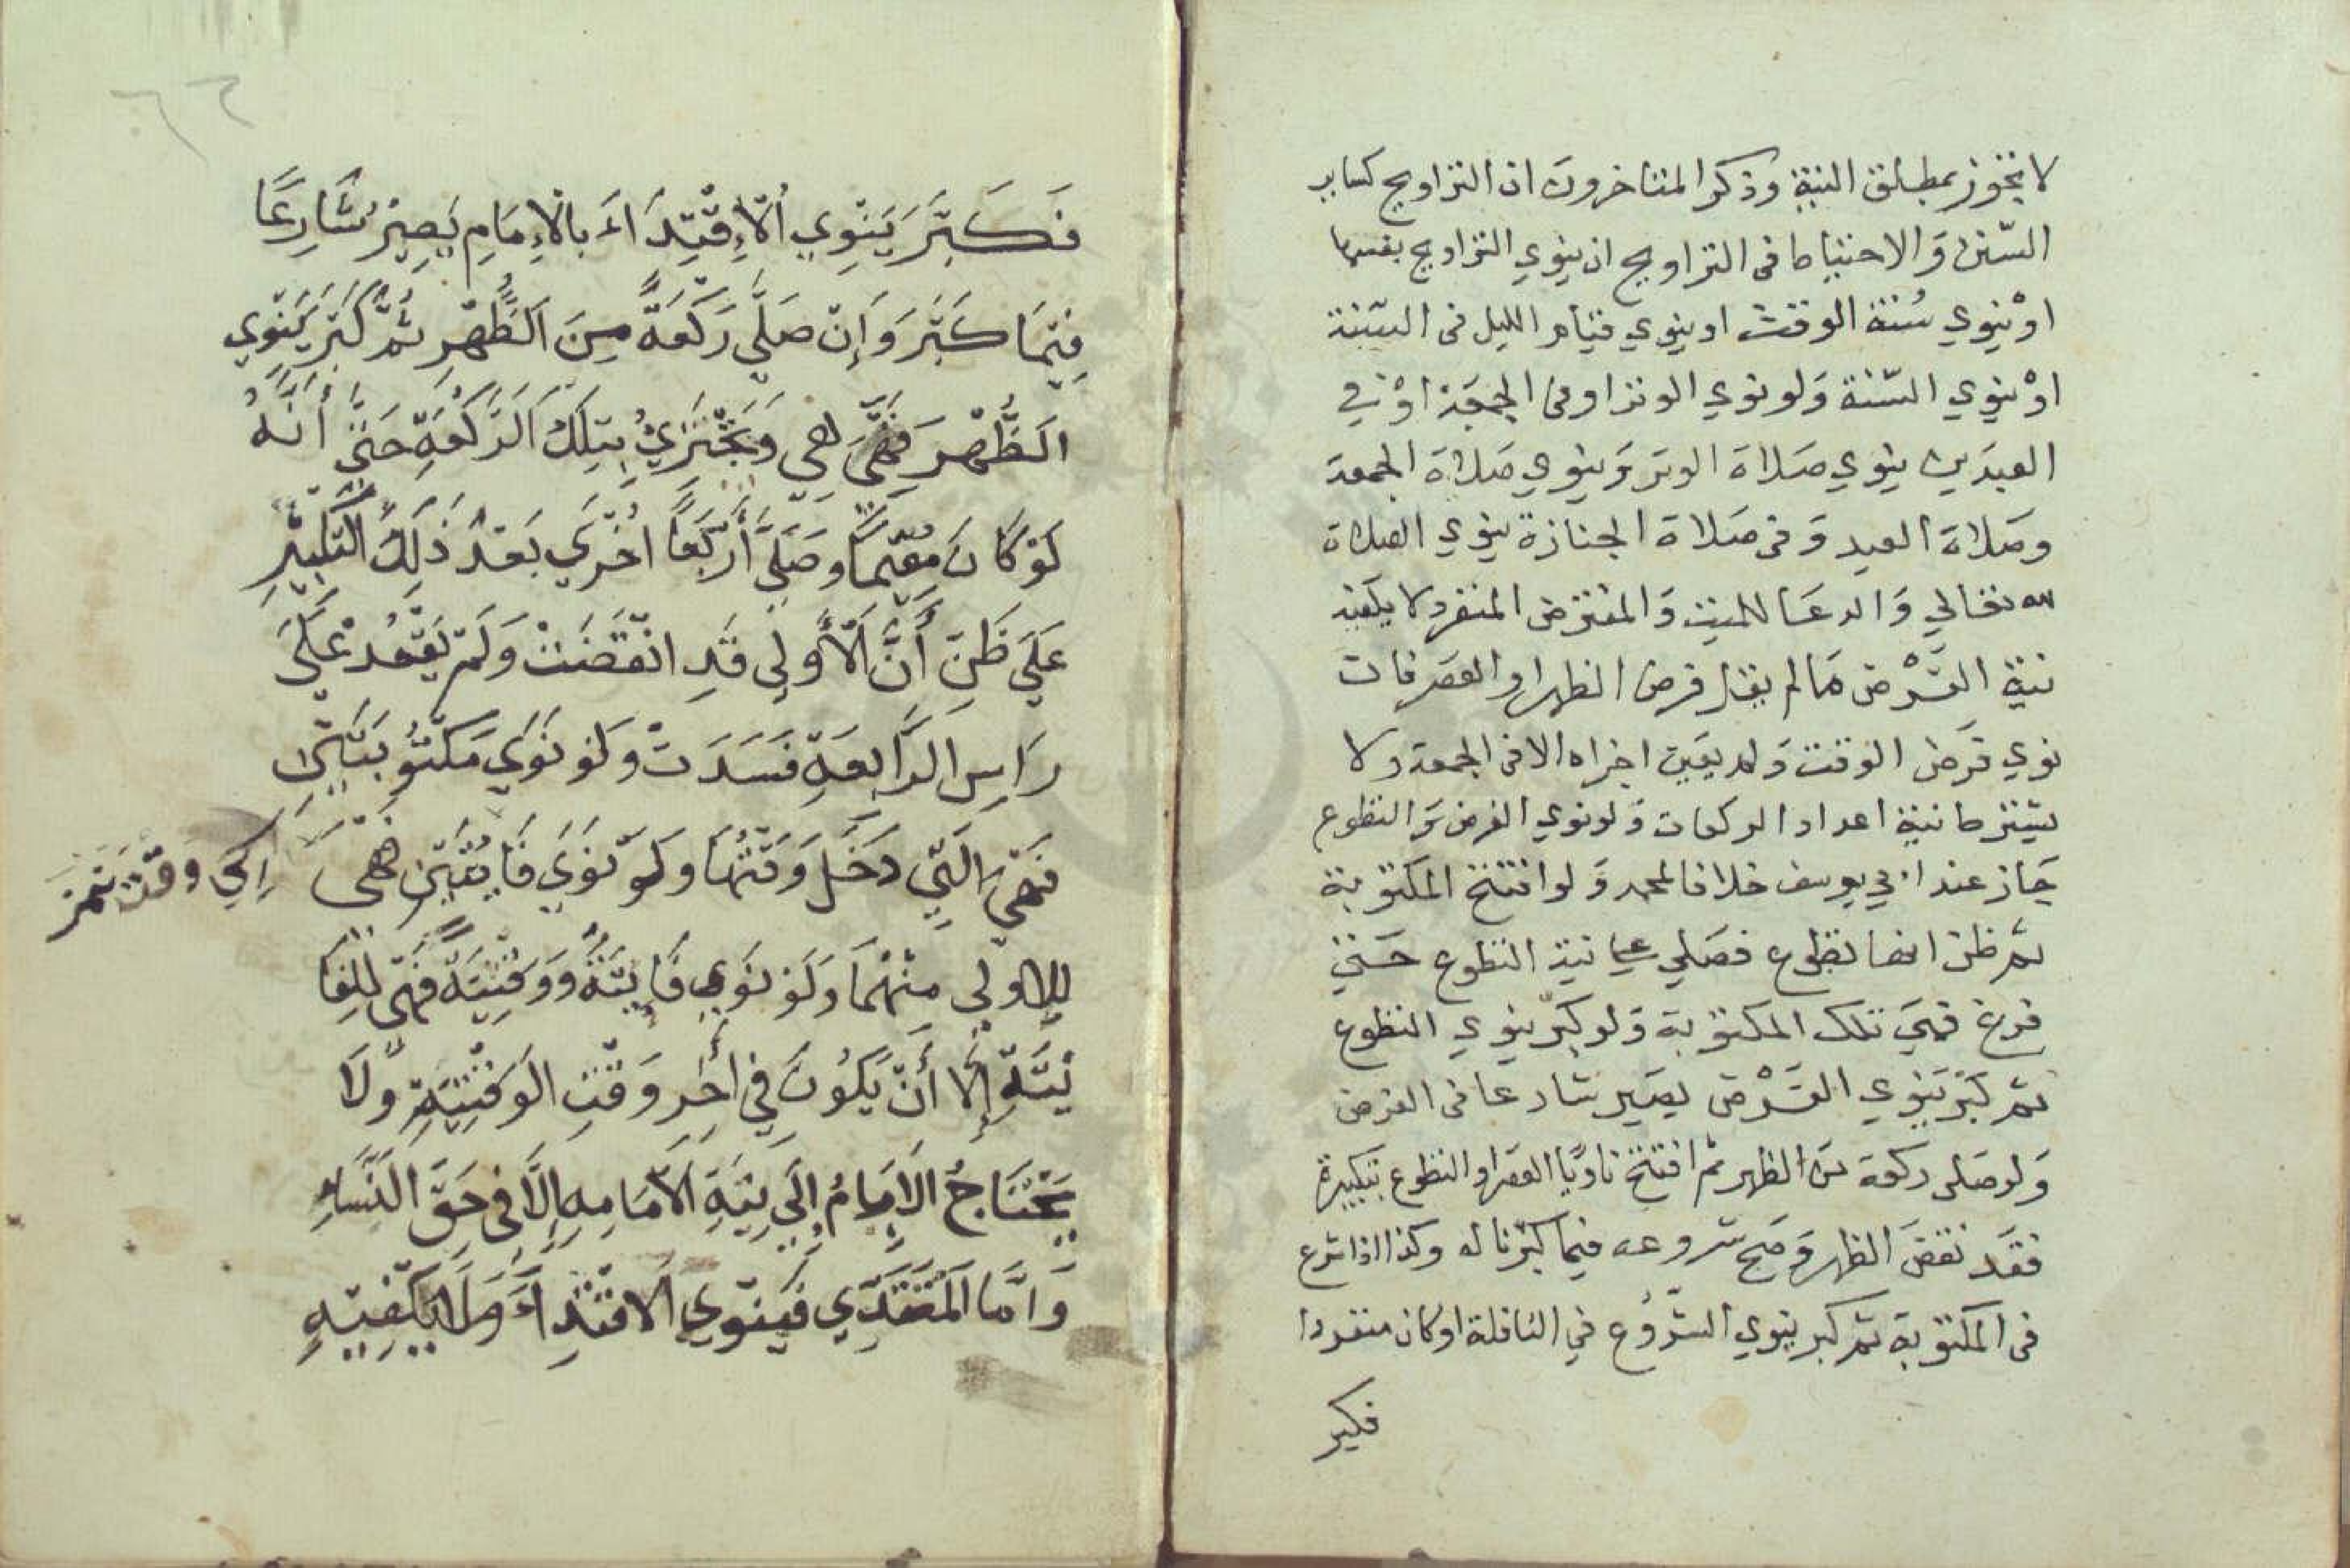 لا يجوز بمطلق النية وذكر المتاخرون ان التراويح كساير
السّنن وَالاحتياط فى التراويح ان ينوي التراويح بفسها
اوْ ينوي سُنة الوقت او ينوي قيام الليل فى السّنة
اوْ ينوي السّنة وَلو نوي الوتر او فى الجمعَة اوْ في
العيدَين ينوي صَلاة الوتر وَينوي صَلاة الجمعة
وصَلاة العيد وَفى صَلاة الجنازة ينوي الصلاة
لله تعالي وَالدعَا للميت وَالمفترض المنفرد لا يكفيه
نية الفَرْض مَا لم يقل فرض الظهر او العصَر فان
نوي فرَض الوقت وَلم يعَين اجزاه الا فى الجمعة ولا
يشترط نية اعداد الركعات وَلو نوي الفرض وَالتطوع
جَاز عند ابي يوسف خلافا لمحمد وَلو افتتح المكتوبة
ثم ظن انها تطوع فصَلي علي نية التطوع حَتي
فرغ فهيَ تلك المكتوبة وَلو كبّر ينوي التطوع
ثم كبّر يَنوي الفَرْض يصَير شارعا فى الفرض
وَلو صَلى ركعة من الظهر ثم افتتح ناويًا العصر او التطوع بتكبيرة
فقَد نقضَ الظهر وَصَح شروعه فيما كبّر ناله وكذا اذا شرع
فى المكتوبة ثم كبر ينوي الشّرُوُع في النافلة او كان منفردا
فكبر
٦٢
فَكَبَّرَ يَنْوِي اُلاِقْتِدَاءَ بالْاِمَامِ يَصِيْرُ شَارِعًا
فِيْمَا كَبَّرَ وَإِنْ صَلَّي رَكْعَةً مِنَ الظُّهْرِ ثُمَّ كَبَّرَ يَنْوِي
الظُّهْرَ فَهِيَ هِي وَيَجْتَزِيُ بِتِلْكَ الرَّكْعَةِ حَتَّي أَنَّهُ
لَوْ كَانَ مُقِيْمًا وصَلَّيَ أَرْبَعًا اخُرَي بَعْدَ ذَلِكَ التَكْبِيْرِ
عَلَي ظَنِّ أَنَّ الْأُولِي قَدِ انْقَضَتْ وَلَمْ يَقْعُدْ عَلَيَ
رَاسِ الرَّابِعَةِ فسَدَتْ وَلَو نَوَي مَكْتُوْبَتَيْنَ
فَهِيَ الَّتِي دَخَلَ وَقْتُهَا وَلَوْ نَوَيَ فَايِتَيْنِ هِىَ
للاولي مِنْهُمَا وَلَوْ نَوَي فَايِتَةً وَوَقْتِيَةً فَهِيَ لِلْفَا
يْتَةِ إِلَّا أَنْ يَكُوْنَ فِي اَخِرِ وَقْتِ الوَقْتِيَةِ وَلَا
يَحْتَاجُ الاِمَامُ اِلَي نِيَةِ الاْمَامِهِ اِلَّا فِى حَقِّ النِّسَاءِ
وَامَّا الْمُقْتَدِي فَيَنْوِي الاقْتِدِاءَ وَلَا يَكْفِيْهِ